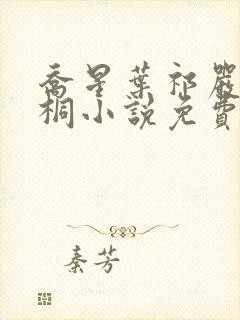 喬星葉祁嚴
桐小說免費
秦芳